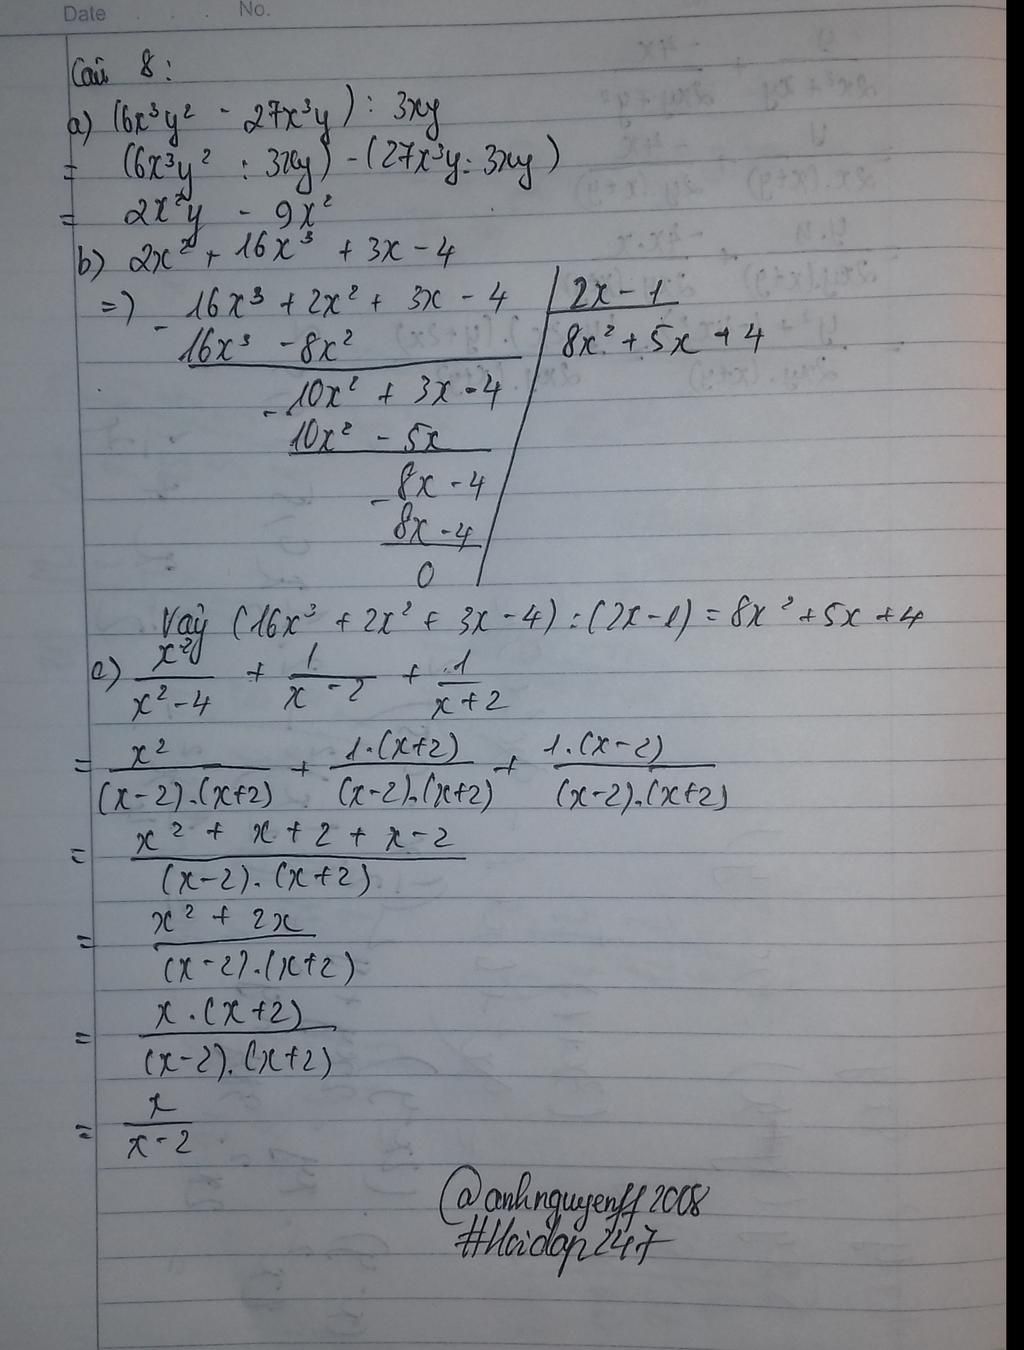 Date No.
Câu 8:
a) (6x³y² - 27x³y) : 3xy
= (6x³y² : 3xy) - (27x³y : 3xy)
= 2x²y - 9x²
b) 2x² + 16x³ + 3x - 4
=) 16x³ + 2x² + 3x - 4 | 2x - 1
- 16x³ - 8x² | 8x² + 5x + 4
10x² + 3x - 4
- 10x² - 5x
8x - 4
- 8x - 4
0
Vậy (16x³ + 2x² + 3x - 4) : (2x - 1) = 8x² + 5x + 4
c) x²/(x² - 4) + 1/(x - 2) + 1/(x + 2)
= x²/((x-2).(x+2)) + 1.(x+2)/((x-2).(x+2)) + 1.(x-2)/((x-2).(x+2))
= (x² + x + 2 + x - 2)/((x-2).(x+2))
= (x² + 2x)/((x-2).(x+2))
= x.(x+2)/((x-2).(x+2))
= x/(x-2)
@anhnguyenff2008
#Hoidap247